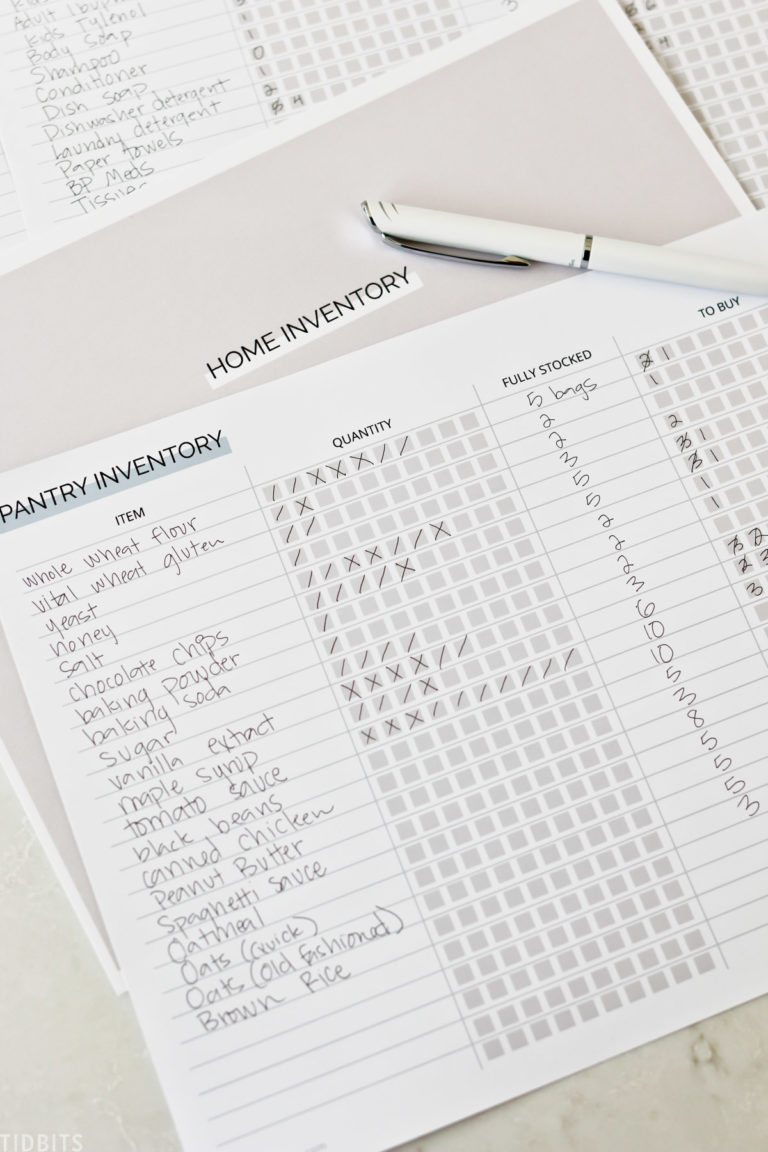 Adult
Kids Tylenol
Body Soap
Shampoo 0
Conditioner 1
Dish soap 2
Dishwasher detergent 4
Laundry detergent
Paper towels
BP Meds
HOME INVENTORY
PANTRY INVENTORY
ITEM QUANTITY FULLY STOCKED TO BUY
whole wheat flour / / X X X / / 5 bags 2 1
vital wheat gluten / X 2 1
yeast / / 2
honey / 3 2
salt / / X X / / X 5 3 1
chocolate chips / / / / X 5 3 1
baking powder / 2 1
baking soda / 2 1
sugar / / / / 2
vanilla extract X X X X / / 3 3 2
maple syrup / / / X 6 2 3
tomato sauce X X X / / / / / / / 10 3
black beans 10
canned chicken 5
Peanut Butter 3
Spaghetti sauce 8
Oatmeal 5
Oats (quick) 5
Oats (old fashioned) 5
Brown Rice 3
TIDBITS